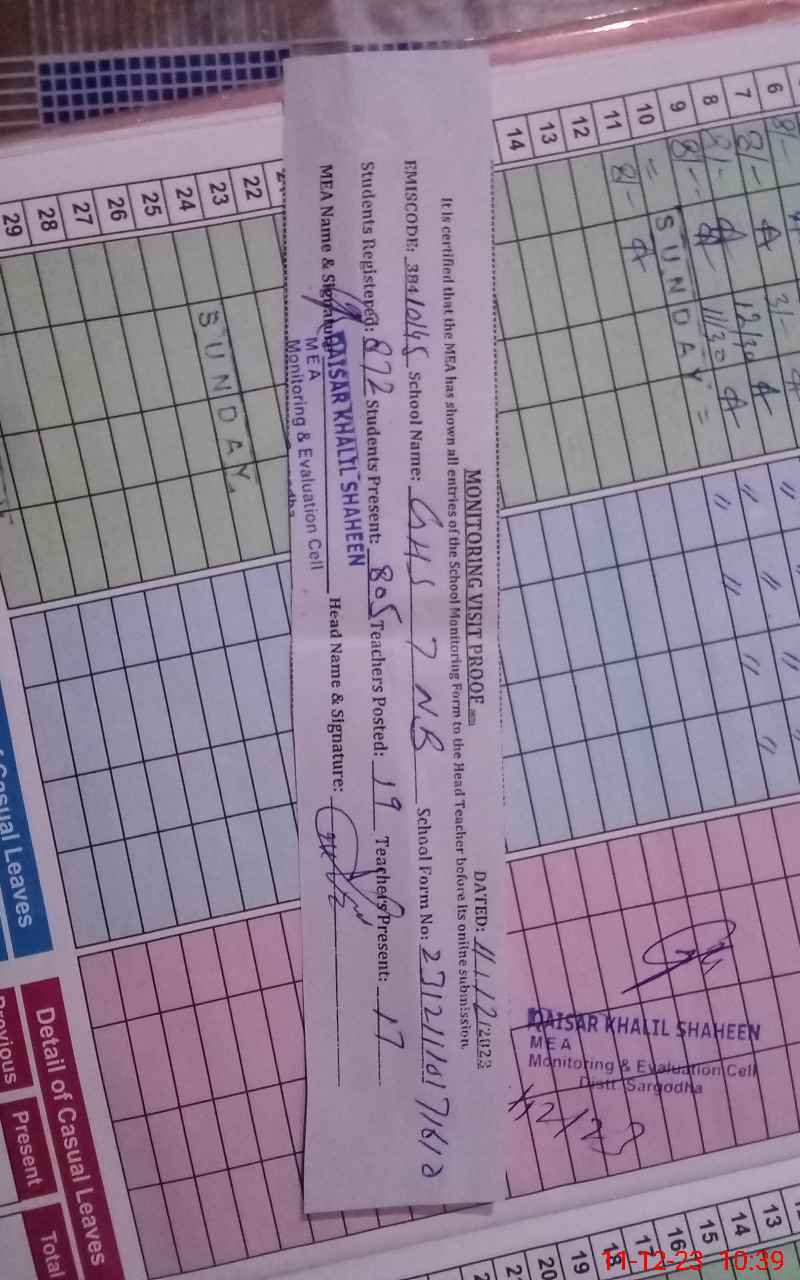 MONITORING VISIT PROOF
DATED: 11-12/2023
It is certified that the MEA has shown all entries of the School Monitoring Form to the Head Teacher before its online submission.
EMISCODE: 38410145 School Name: GHS 7 NB School Form No:
Students Registered: 872 Students Present: 805 Teachers Posted: 19 Teachers Present: 17
MEA Name & Signature: Head Name & Signature:
QAISAR KHALIL SHAHEEN
MEA
Monitoring & Evaluation Cell
6
7
8
9
10
11
12
13
14
8/-
8/-
8/-
8/-
8/-
A
A
A
12/30 A
11/30 A
= SUNDAY =
22
23
24
25
26
27
28
29
SUNDAY
QAISAR KHALIL SHAHEEN
MEA
Monitoring & Evaluation Cell
Distt. Sargodha
11/12/23
Casual Leaves
Detail of Casual Leaves
Previous
Present
Total
13
14
15
16
17
18
19
20
21
11-12-23 10:39